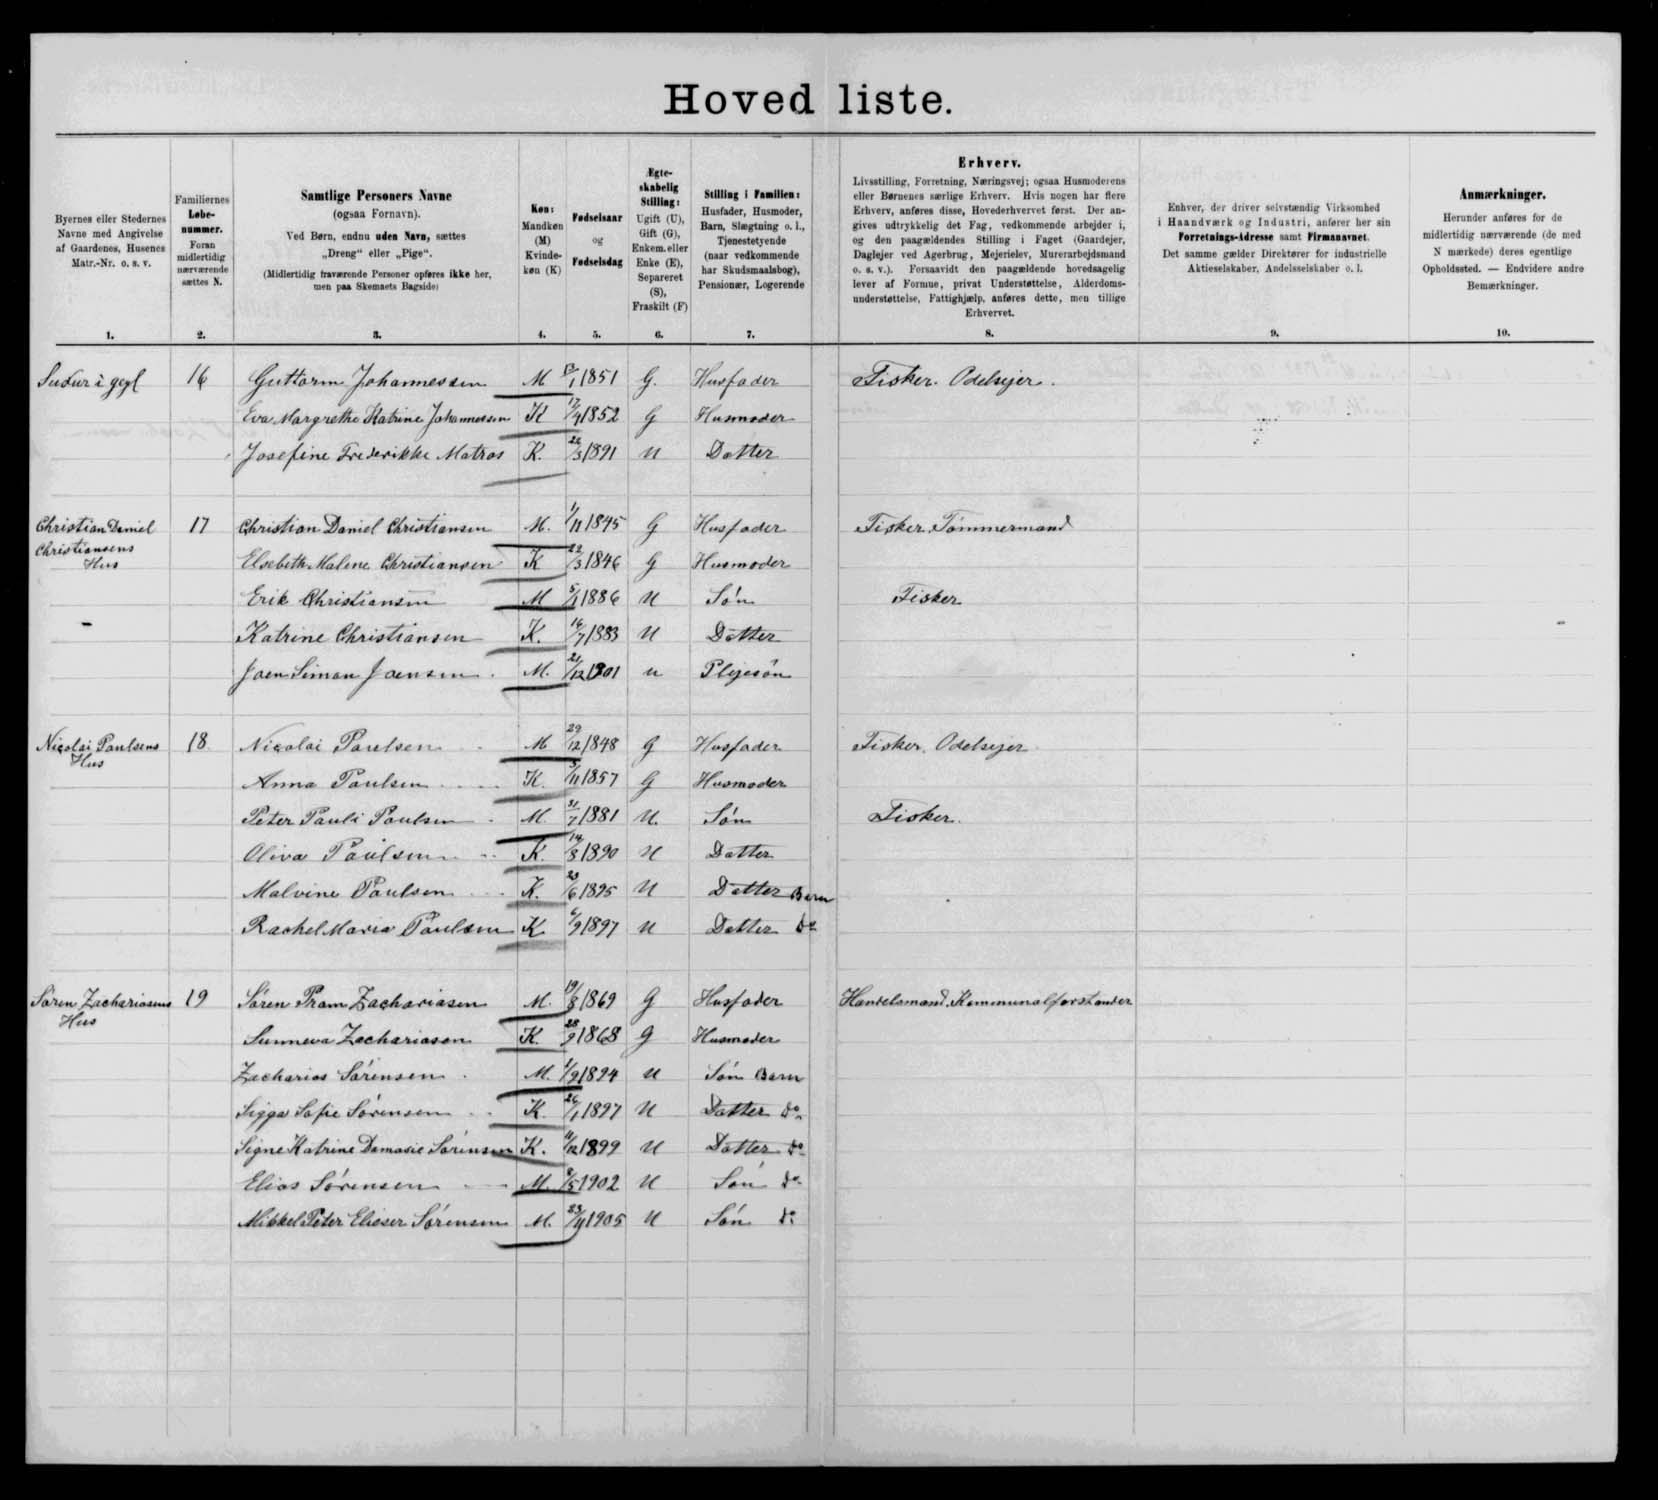 Hovedliste.
Byernes eller Stedernes
Navne med Angivelse
af Gaardenes, Husenes
Matr.-Nr. o. s. v.
1.
Familiernes
Løbe-
nummer.
Foran
midlertidig
nærværende
sættes N.
2.
Samtlige Personers Navne
(ogsaa Fornavn).
Ved Børn, endnu uden Navn, sættes
„Dreng“ eller „Pige“.
(Midlertidig fraværende Personer opføres ikke her,
men paa Skemaets Bagside)
3.
Køn:
Mandkøn
(M)
Kvinde-
køn (K)
4.
Fødselsaar
og
Fødselsdag
5.
Ægte-
skabelig
Stilling:
Ugift (U),
Gift (G),
Enkem. eller
Enke (E),
Separeret
(S),
Fraskilt (F)
6.
Stilling i Familien:
Husfader, Husmoder,
Barn, Slægtning o. l.,
Tjenestetyende
(naar vedkommende
har Skudsmaalsbog),
Pensionær, Logerende
7.
Erhverv.
Livsstilling, Forretning, Næringsvej; ogsaa Husmoderens
eller Børnenes særlige Erhverv. Hvis nogen har flere
Erhverv, anføres disse, Hovederhvervet først. Der an-
gives udtrykkelig det Fag, vedkommende arbejder i,
og den paagældendes Stilling i Faget (Gaardejer,
Daglejer ved Agerbrug, Mejerielev, Murerarbejdsmand
o. s. v.). Forsaavidt den paagældende hovedsagelig
lever af Formue, privat Understøttelse, Alderdoms-
understøttelse, Fattighjælp, anføres dette, men tillige
Erhvervet.
8.
Enhver, der driver selvstændig Virksomhed
i Haandværk og Industri, anfører her sin
Forretnings-Adresse samt Firmanavnet.
Det samme gælder Direktører for industrielle
Aktieselskaber, Andelsselskaber o. l.
9.
Anmærkninger.
Herunder anføres for de
midlertidig nærværende (de med
N mærkede) deres egentlige
Opholdssted. — Endvidere andre
Bemærkninger.
10.
Suður i gegl 16 Guttorm Johannessen M 1/1 1851 G. Husfader Fisker. Odelsejer.
Eva Margrethe Katrine Johannessen K 17/4 1852 G Husmoder
Josefine Frederikke Matras K. 26/3 1891 U Datter
Christian Daniel 17 Christian Daniel Christiansen M. 1/11 1845 G Husfader Fisker. Tømmermand
Christiansens
Hus Elsebeth Malene Christiansen K 22/3 1846 G Husmoder
Erik Christiansen M 5/1 1886 U Søn Fisker
Katrine Christiansen K. 16/7 1883 U Datter
Joen Simon Joensen. M. 21/12 1901 u Plejesøn
Nicolai Paulsens 18. Nicolai Paulsen M 29/12 1848 G Husfader Fisker. Odelsejer
Hus
Anna Paulsen K. 3/11 1857 G Husmoder
Peter Pauli Paulsen M. 31/7 1881 U. Søn Fisker.
Oliva Paulsen K. 14/8 1890 U Datter
Malvine Paulsen K. 23/6 1895 U Datter Barn
Rachel Maria Paulsen K 6/9 1897 U Datter do
Søren Zachariasens 19 Søren Pram Zachariasen M. 19/8 1869 G Husfader Handelsmand. Kommunalforstander
Hus
Sunneva Zachariasen K. 28/9 1868 G Husmoder
Zacharias Sørensen. M. 1/9 1894 U Søn Barn
Sigga Sofie Sørensen K. 26/1 1897 U Datter do
Signe Katrine Damasie Sørensen K. 11/12 1899 U Datter do
Elias Sørensen M. 2/5 1902 U Søn do
Mikkel Peter Elieser Sørensen M. 23/4 1905 U Søn do